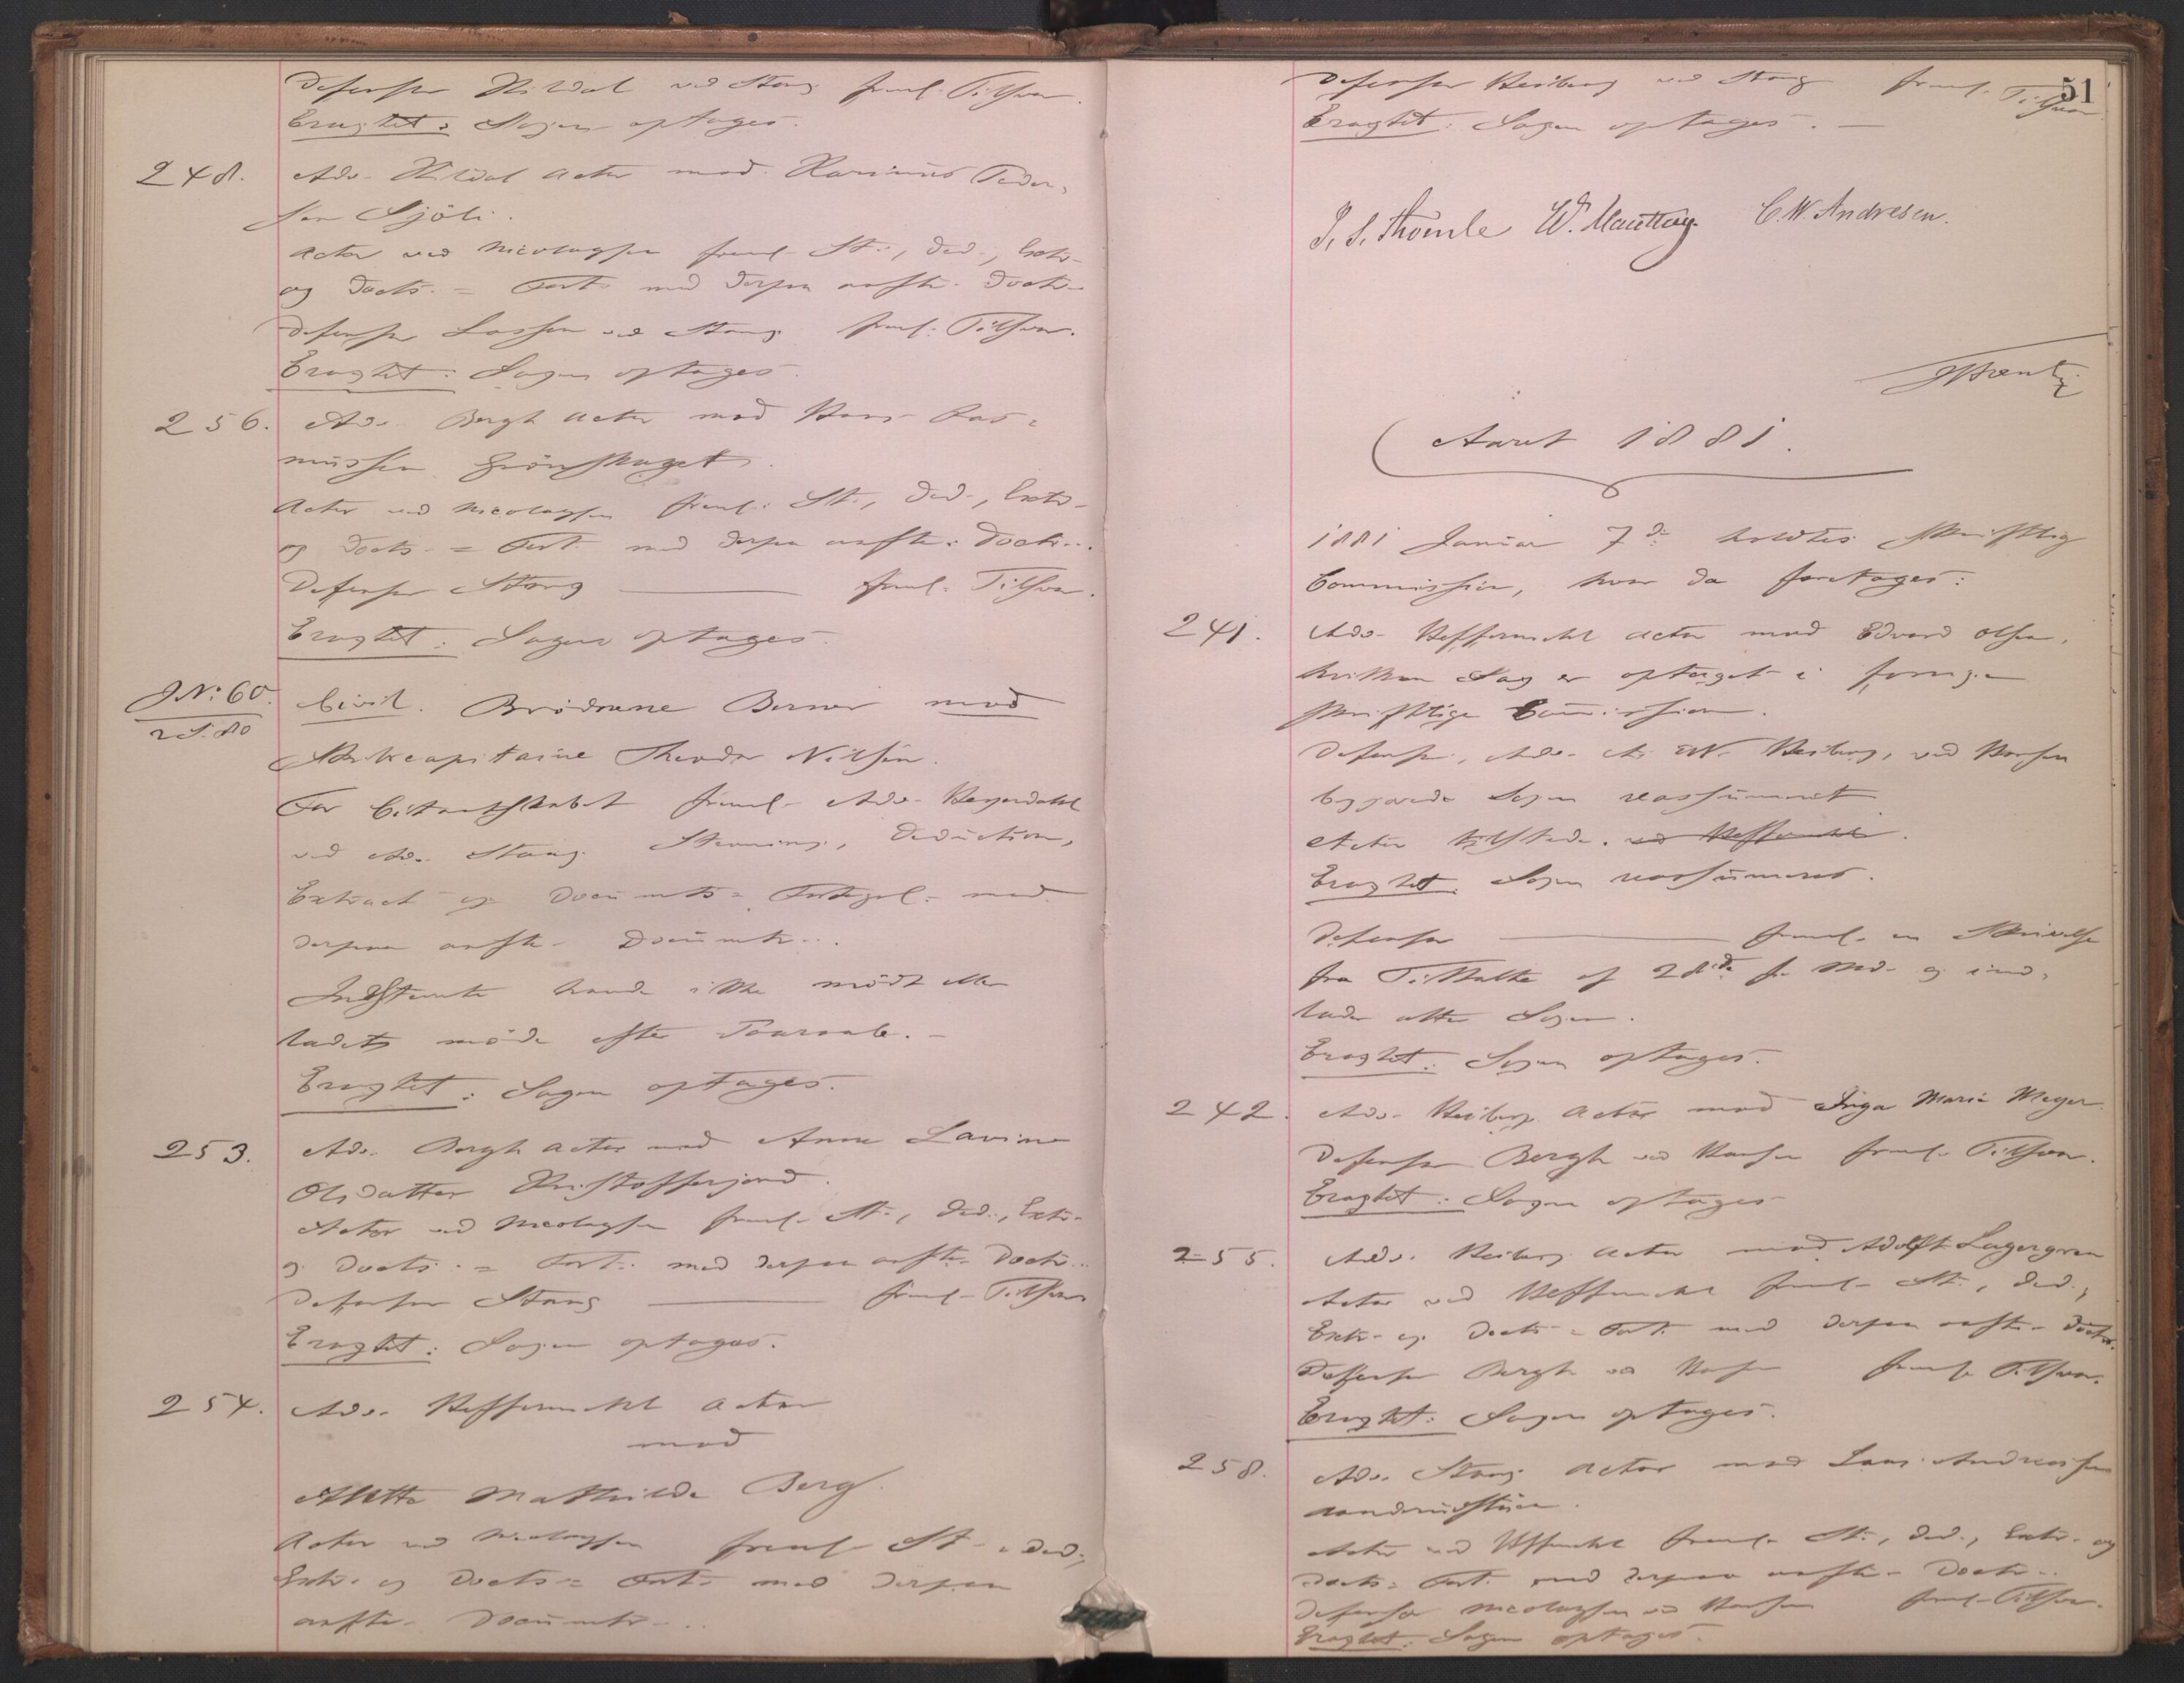 Defensor Hildal ved Stang freml. Tilsvar.
Eragtet: Sagen optages.
248. Adv. Hildal Actor mod Karinius Peder-
sen Sjöli.
Actor ved Nicolaysen freml. St., Ded., Extr.
og Docts. = Fort. med derpaa anførte Doctr.
Defensor Lassen ved Stang freml. Tilsvar.
Eragtet: Sagen optages.
256. Adv. Bergh Actor mod Hans Ras-
mussen Grönskaget.
Actor ved Nicolaysen freml. St., Ded., Extr.
og Docts. = Fort. med derpaa anførte Doctr.
Defensor Stang freml. Tilsvar.
Eragtet: Sagen optages.
J N: 60. Civil. Brødrene Berner mod
2 S. 80
Skibscapitaine Theodor Nilsen.
For Citantskabet freml. Adv. Heyerdahl
ved Adv. Stang Stevning, Deduction,
Extract og Documts = Fortegnl. med
derpaa anførte Documtr.
Indstevnte havde ikke mödt eller
ladet möde efter Paaraab.
Eragtet: Sagen optages.
253. Adv. Bergh Actor mod Anne Lavine
Olsdatter Kristoffersjord.
Actor ved Nicolaysen freml. St., Ded., Extr.
og Docts. = Fort. med derpaa anførte Doctr.
Defensor Stang freml. Tilsvar
Eragtet: Sagen optages.
254. Adv. Heffermehl Actor
mod
Alette Mathilde Berg.
Actor ved Nicolaysen freml. St., Ded.,
Extr. og Docts = Fort. med derpaa
anførte Documtr.
51
Defensor Heiberg ved Stang freml. Tilsvar
Eragtet: Sagen optages.
W. C. W. Andresen.
Aaret 1881.
1881 Januar 7de holdtes skriftlig
Commission, hvor da foretages:
241. Adv. Heffermehl Actor mod Edvard Olsen,
hvilken Sag er optaget i forrige
skriftlige Commission.
Defensor, Adv. Heiberg, ved Hansen
begjærede Sagen reassumeret
Actor tilstede. ved Heffermehl.
Eragtet: Sagen reassumeres.
Defensor freml. en Skrivelse
fra Tiltalte af 28de f. Md. og ind-
lader atter Sagen.
Eragtet: Sagen optages.
242. Adv. Heiberg Actor mod Inga Marie Meyer
Defensor Bergh ved Hansen freml. Tilsvar.
Eragtet: Sagen optages
255. Adv. Heiberg Actor mod Adolf Lagergren
Actor ved Heffermehl freml. St., Ded.,
Extr. og Docts = Fort. med derpaa anførte Doctr.
Defensor Bergh ved Hansen freml. Tilsvar.
Eragtet: Sagen optages.
258. Adv. Stang Actor mod Lars Andreassen
Actor ved Heffermehl freml. St., Ded., Extr. og
Docts = Fort. med derpaa anførte Doctr.
Defensor Nicolaysen ved Hansen freml. Tilsvar.
Eragtet: Sagen optages.